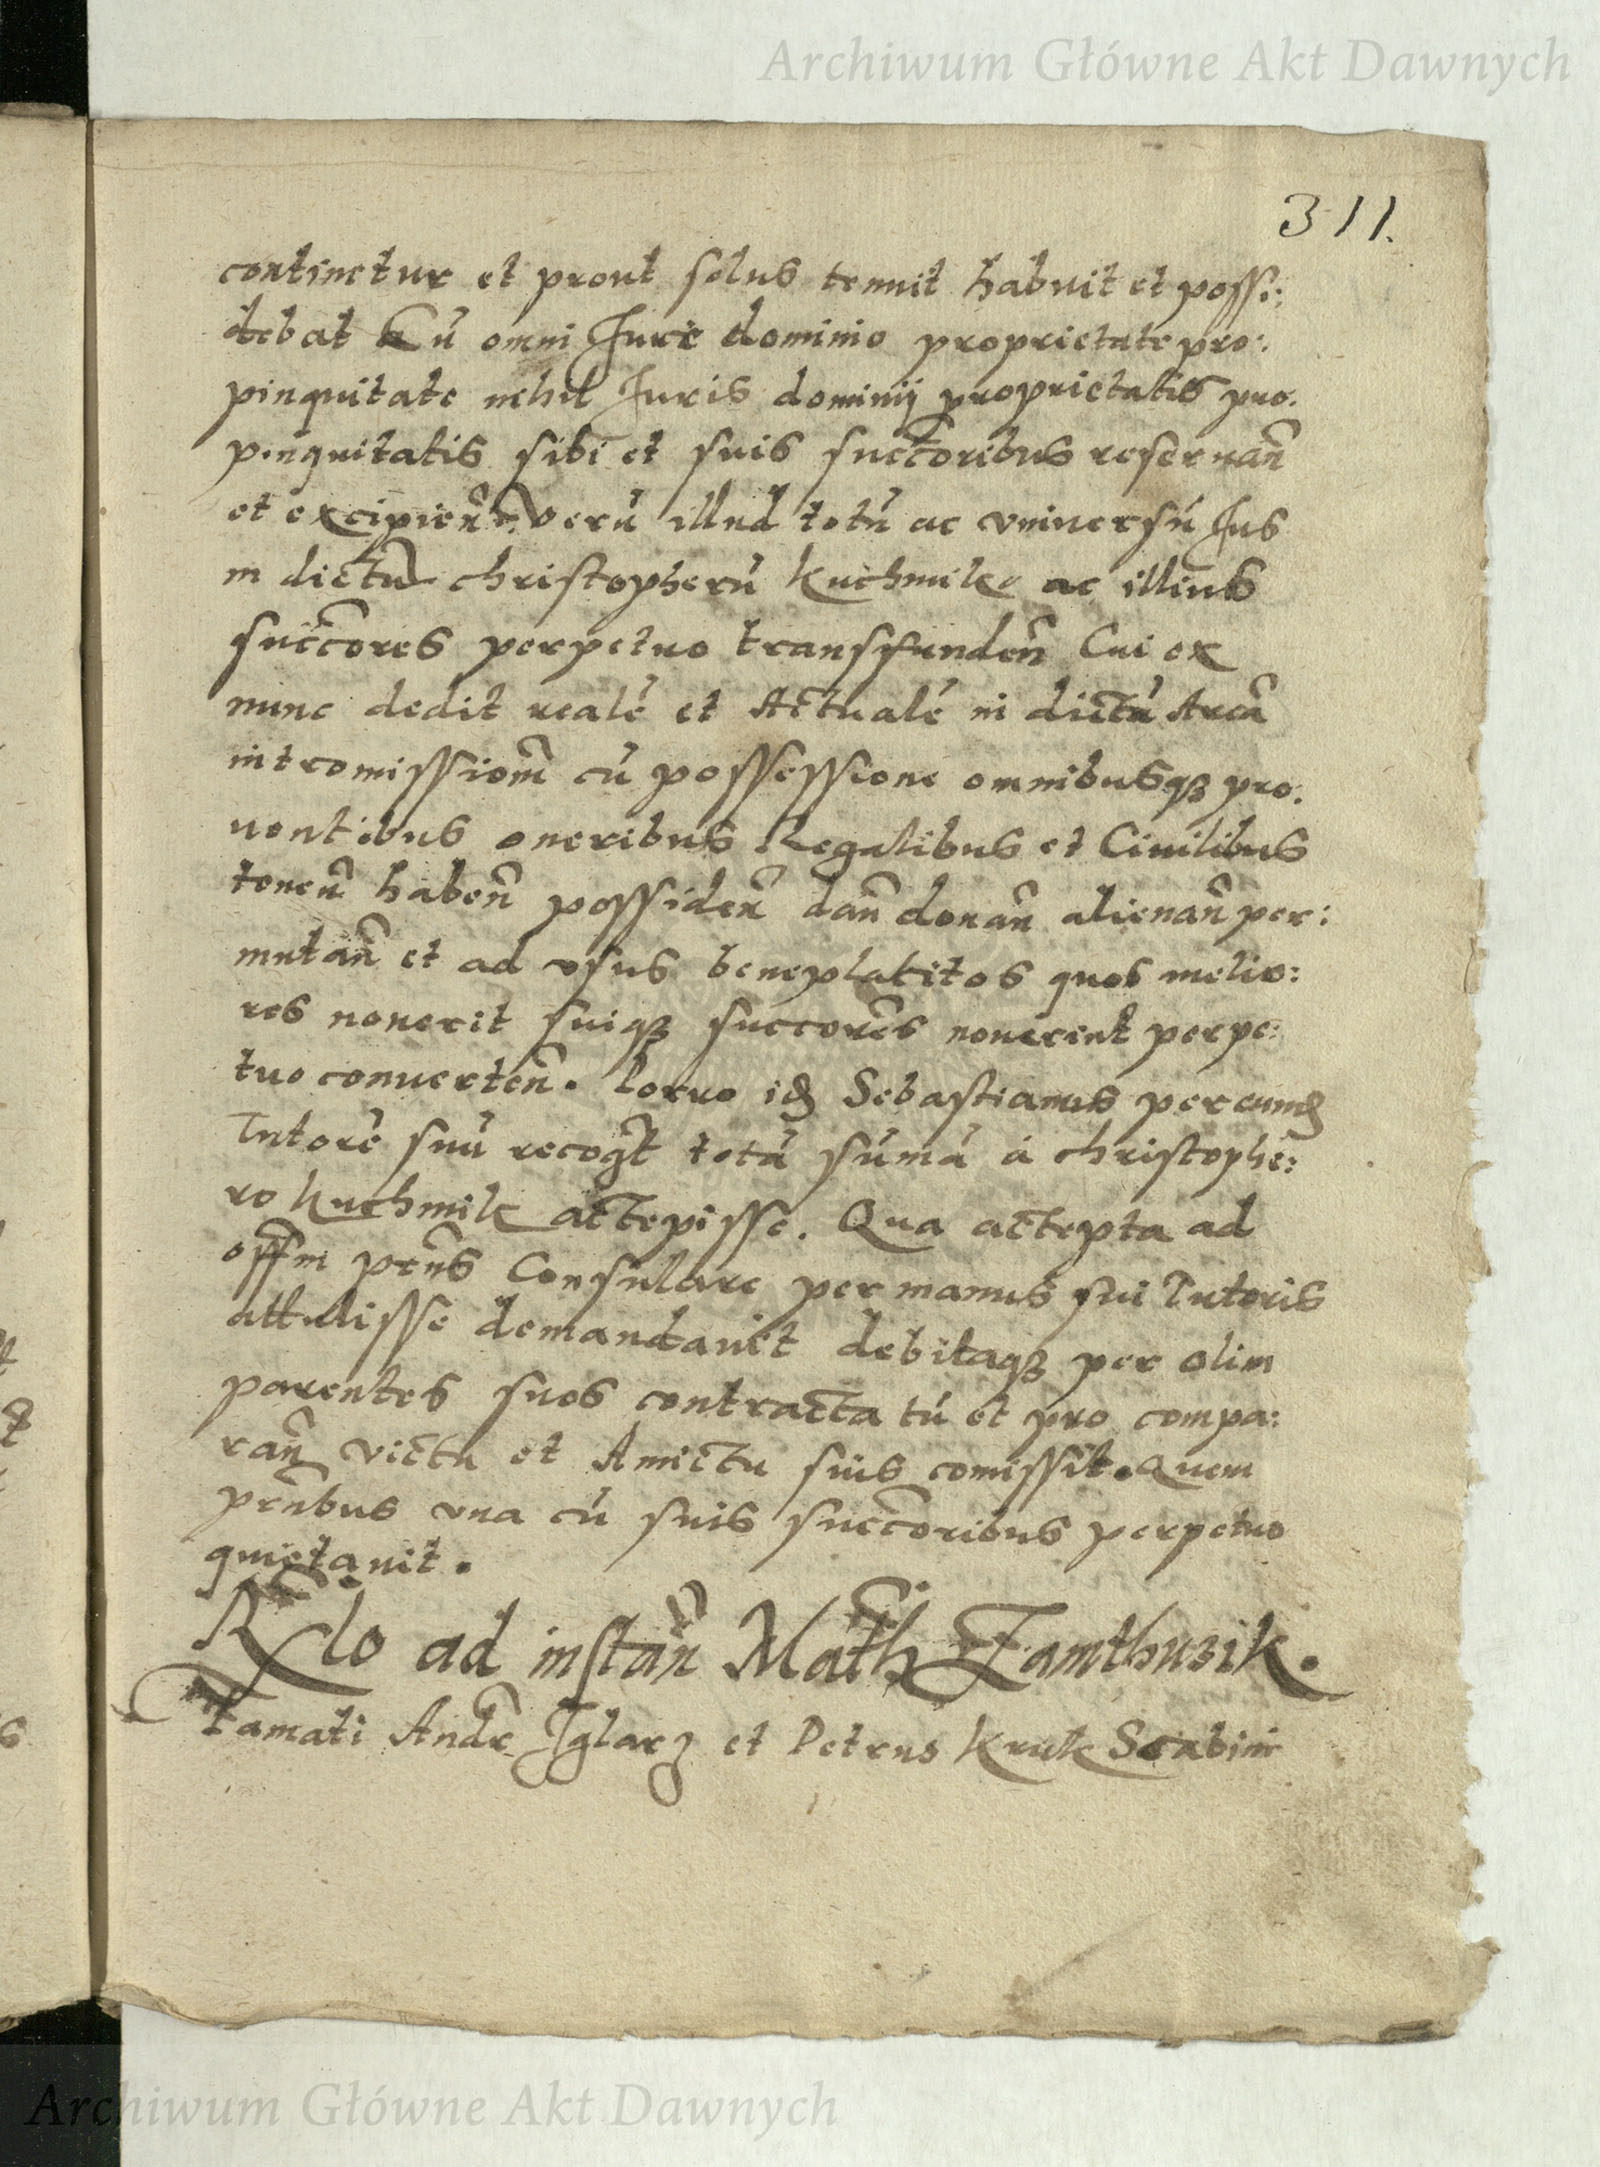 Archiwum Główne Akt Dawnych
311.
continetur et prout solus tenuit habuit et possi:
debat Cū omni Jure dominio proprietate pro:
pinquitate nihil Juris dominij proprietatis pro.
pinquitatis sibi et suis succ̄oribus reseruan̄
et excipien̄. Verū illud totū ac vniuersū Jus
in dictū christopherū kuchmik ac illius
succ̄ores perpetuo transfunden̄ Cui ex
nunc dedit realē et Actualē in dictā Areā
intromissiom̄ cū possessione omnibusqȝ pro.
uentibus oneribus Regalibus et Ciuilibus
tenen̄ haben̄ possiden̄ dan̄ donan̄ alienan̄ per:
mutan̄ et ad vsus beneplacitos quos melio:
res nouerit suiqȝ succores̄ nouerint perpe:
tuo conuerten̄. Porro idȝ Sebastianus per eundȝ
Tutorē suū recoḡt totā sūmā á christophe:
ro kuchmik accepisse. Qua accepta ad
offm̄ prn̄s Consulare per manus sui Tutoris
attulisse demandauit debitaqȝ per olim
parentes suos contracta tū et pro compa:
ran̄ victu et Amictu suis comissit. Quem
prn̄tibus vna cū suis succ̄oribus perpetuo
quietauit.
Rlo ad instan̄ Math Zamthuzik.
famati Andr̄ Jglarz et Petrus kruk Scabini
Archiwum Główne Akt Dawnych